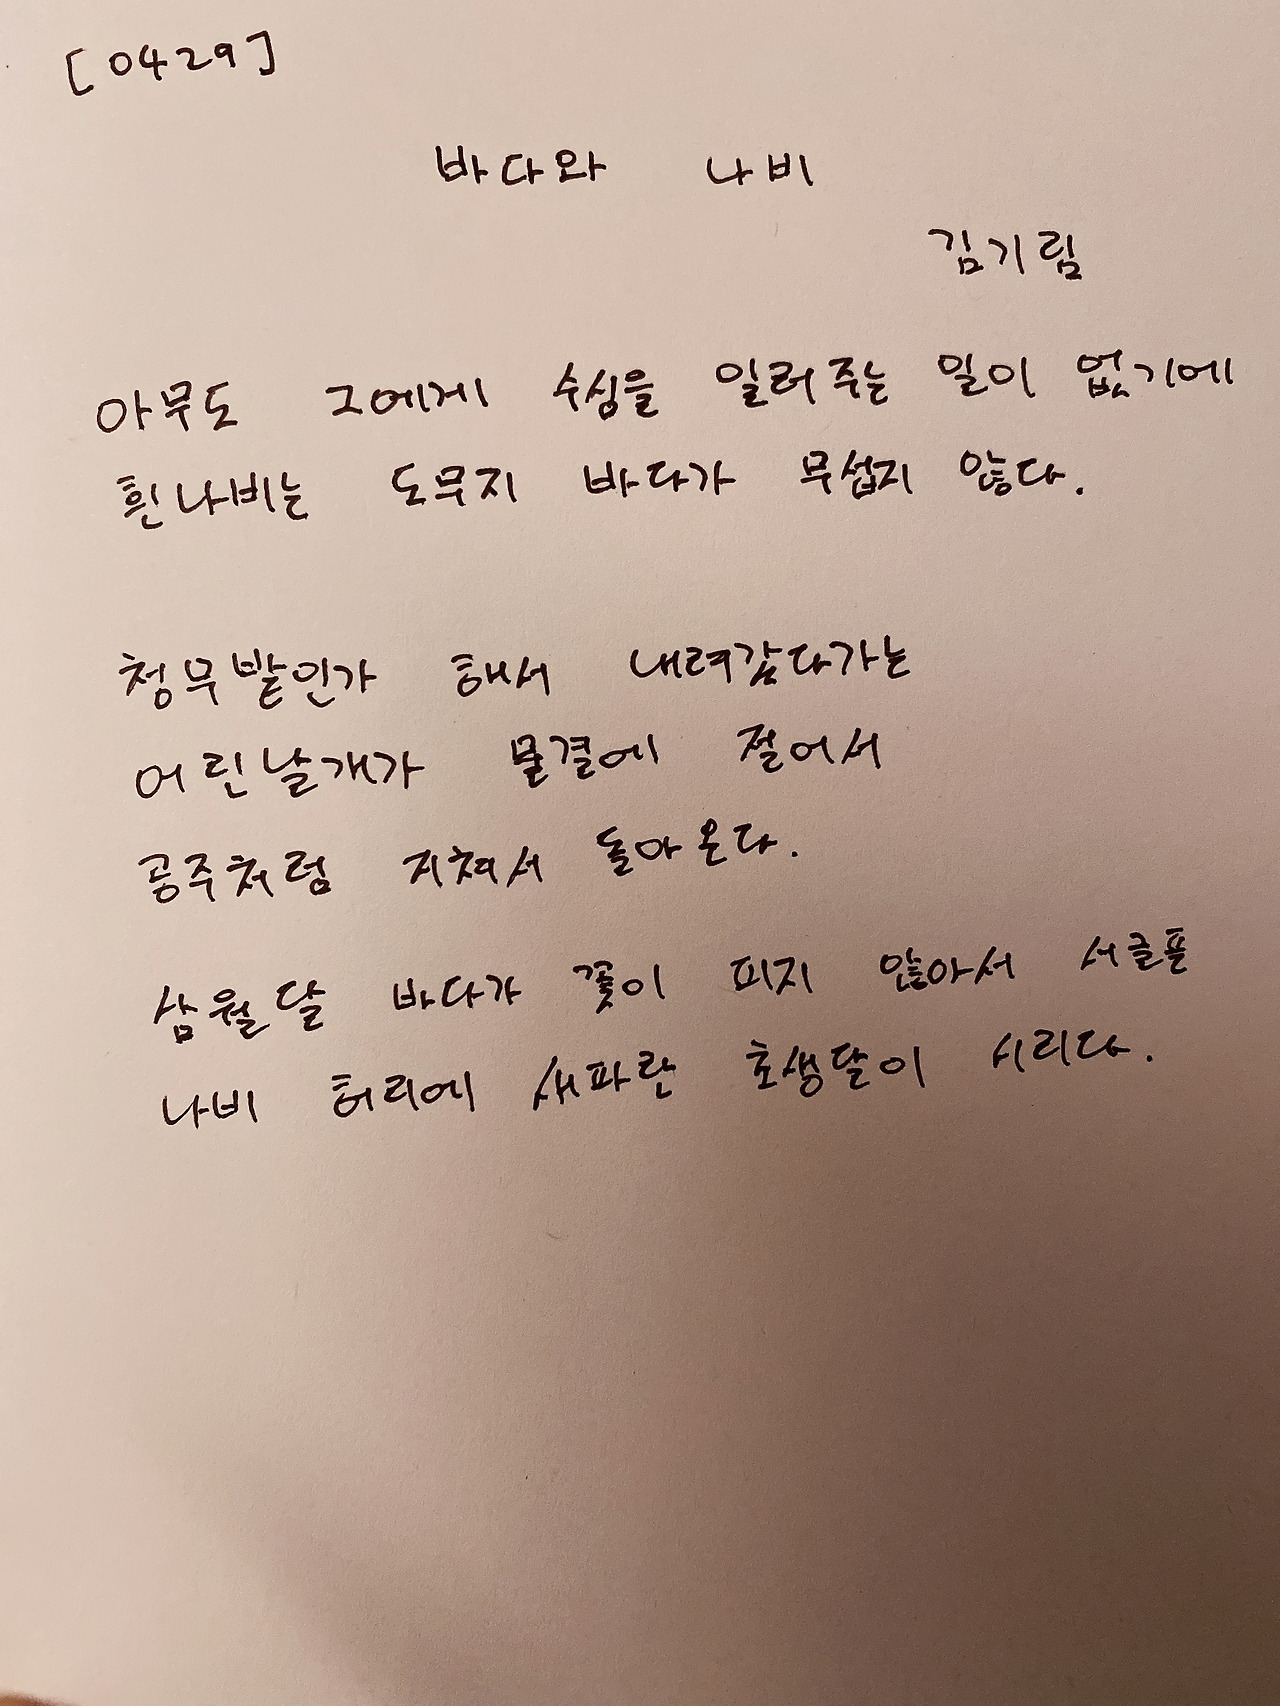 [0429]
바다와 나비
김기림
아무도 그에게 수심을 일러주는 일이 없기에
흰나비는 도무지 바다가 무섭지 않다.
청무밭인가 해서 내려갔다가는
어린날개가 물결에 절어서
공주처럼 지쳐서 돌아온다.
삼월달 바다가 꽃이 피지 않아서 서글픈
나비 허리에 새파란 초생달이 시리다.